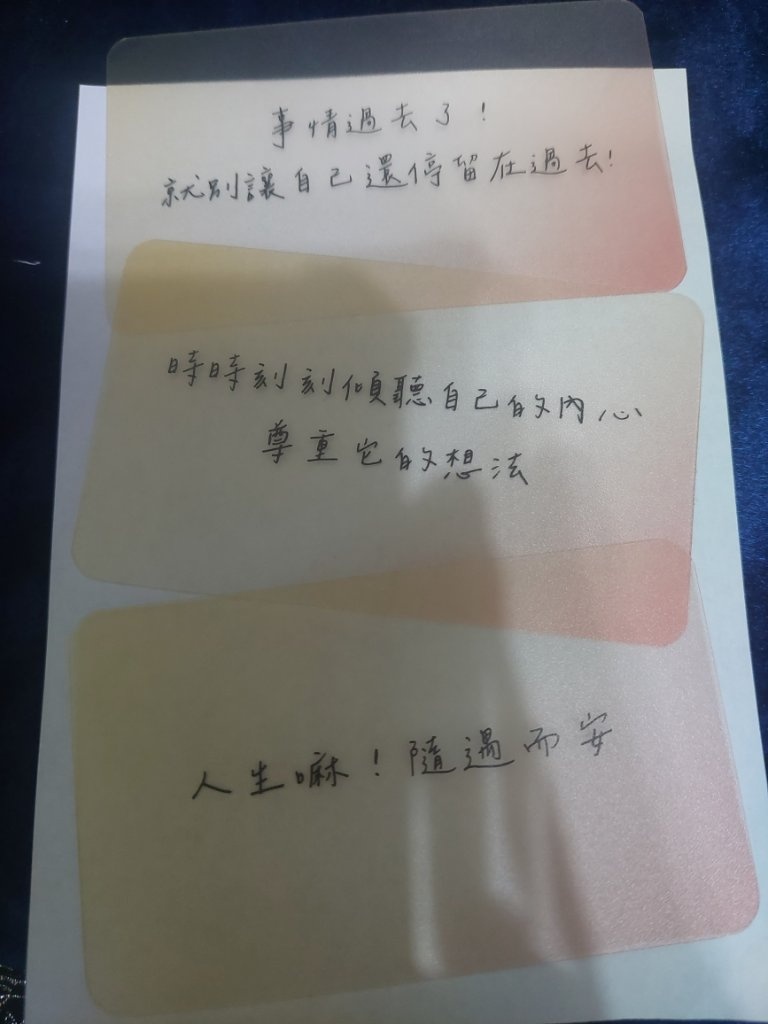 事情過去了！
就別讓自己還停留在過去！
時時刻刻傾聽自己的內心
尊重它的想法
人生嘛！隨遇而安